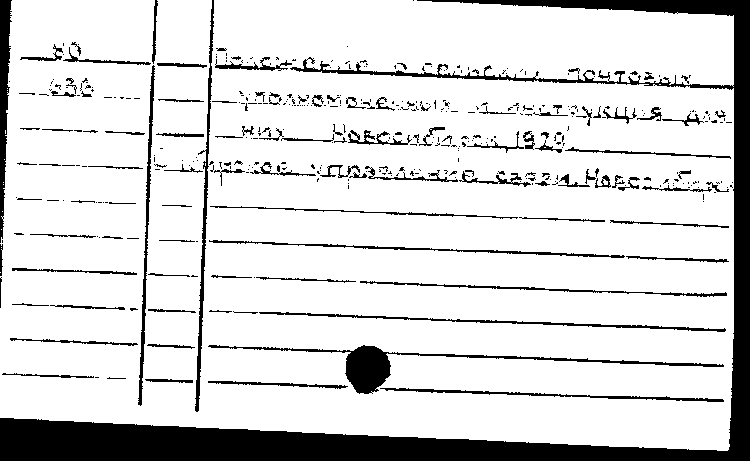 80 Положение о сельских почтовых
636 уполномоченных и инструкция для
них Новосибирск, 1929.
Сибирское управление связи. Новосибирск